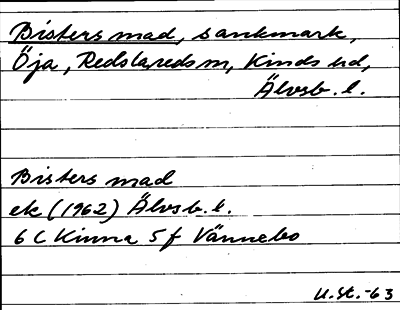 Bisters mad, sankmark,
Öja, Redslareds sn, Kinds hd,
Älvsb. l.
Bisters mad
ek (1962) Älvsb. l.
6 C Kinna 5 f Vännebo
U.St.-63